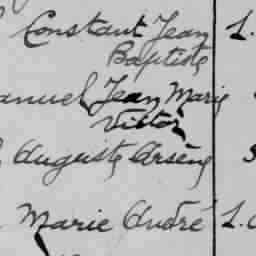 Constant Jean
Baptiste
Jean Marie
Victor
Auguste Arsène
Marie André